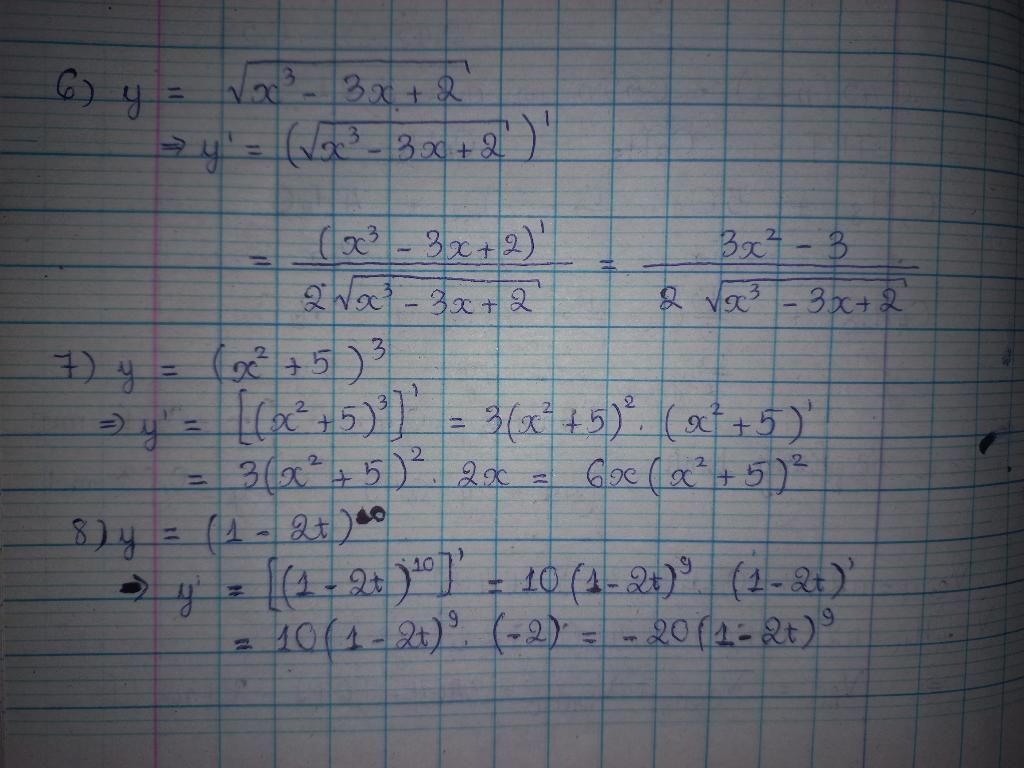 6) y = √(x³ - 3x + 2)
⇒ y' = (√(x³ - 3x + 2))'
= (x³ - 3x + 2)' / 2√(x³ - 3x + 2) = 3x² - 3 / 2√(x³ - 3x + 2)
7) y = (x² + 5)³
⇒ y' = [(x² + 5)³]' = 3(x² + 5)² . (x² + 5)'
= 3(x² + 5)² . 2x = 6x(x² + 5)²
8) y = (1 - 2t)¹⁰
⇒ y' = [(1 - 2t)¹⁰]' = 10(1 - 2t)⁹. (1 - 2t)'
= 10(1 - 2t)⁹. (-2) = -20(1 - 2t)⁹